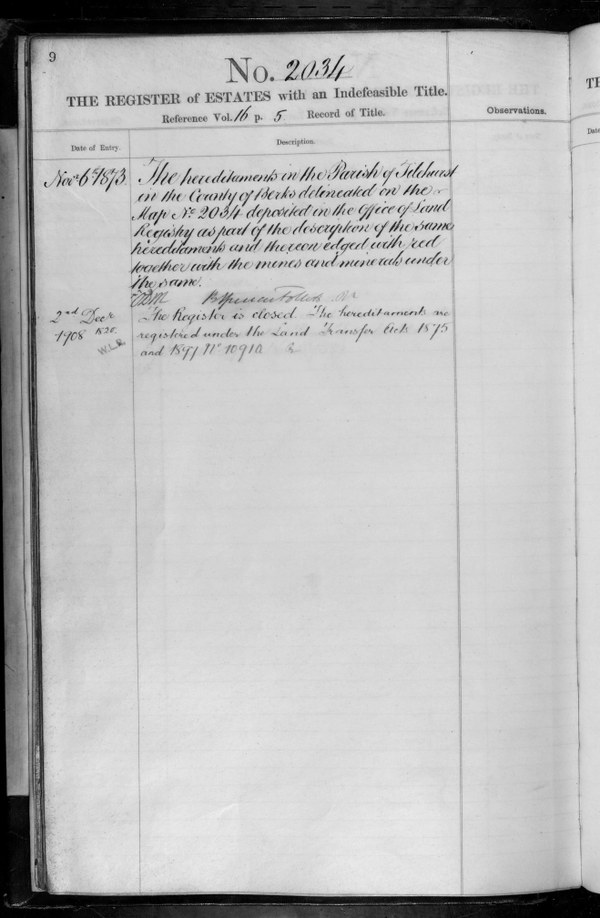 9
No. 2034
THE REGISTER of ESTATES with an Indefeasible Title.
Reference Vol. 16 p. 5 Record of Title.
Observations.
Date of Entry.
Description.
Novr. 6th 1873.
The hereditaments in the Parish of Tilehurst
in the County of Berks delineated on the
Map No. 2034 deposited in the Office of Land
Registry as part of the description of the same
hereditaments and thereon edged with red
together with the mines and minerals under
the same.
2nd Decr.
1908
The Register is closed. The hereditaments are
registered under the Land Transfer Acts 1875
and 1897 No.